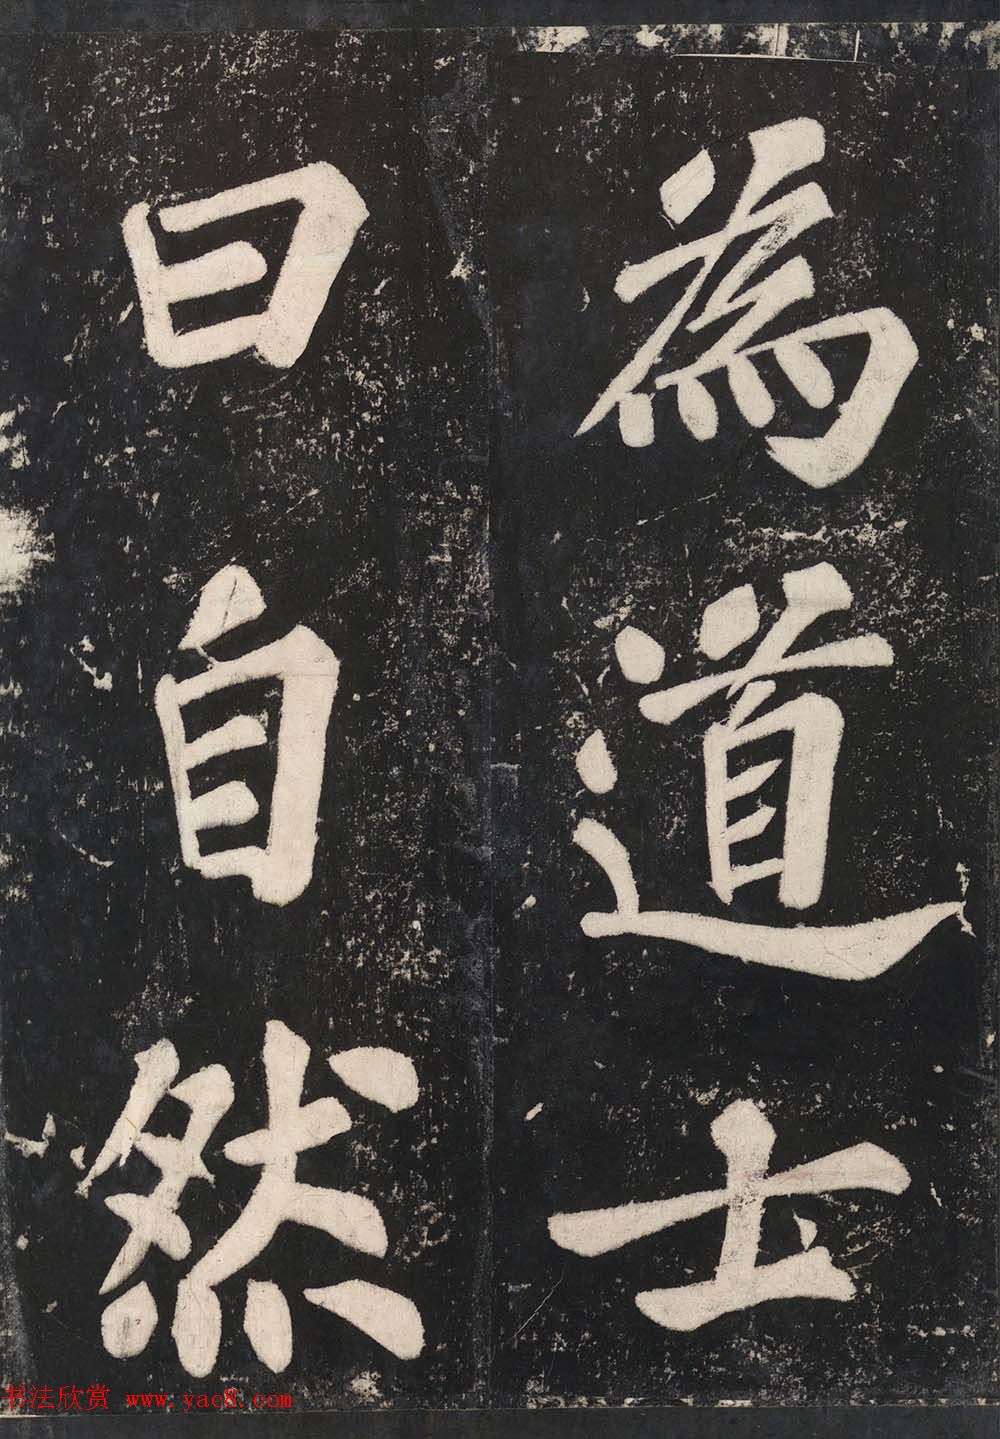 為道士
曰自然
书法欣赏 www.yac8.com